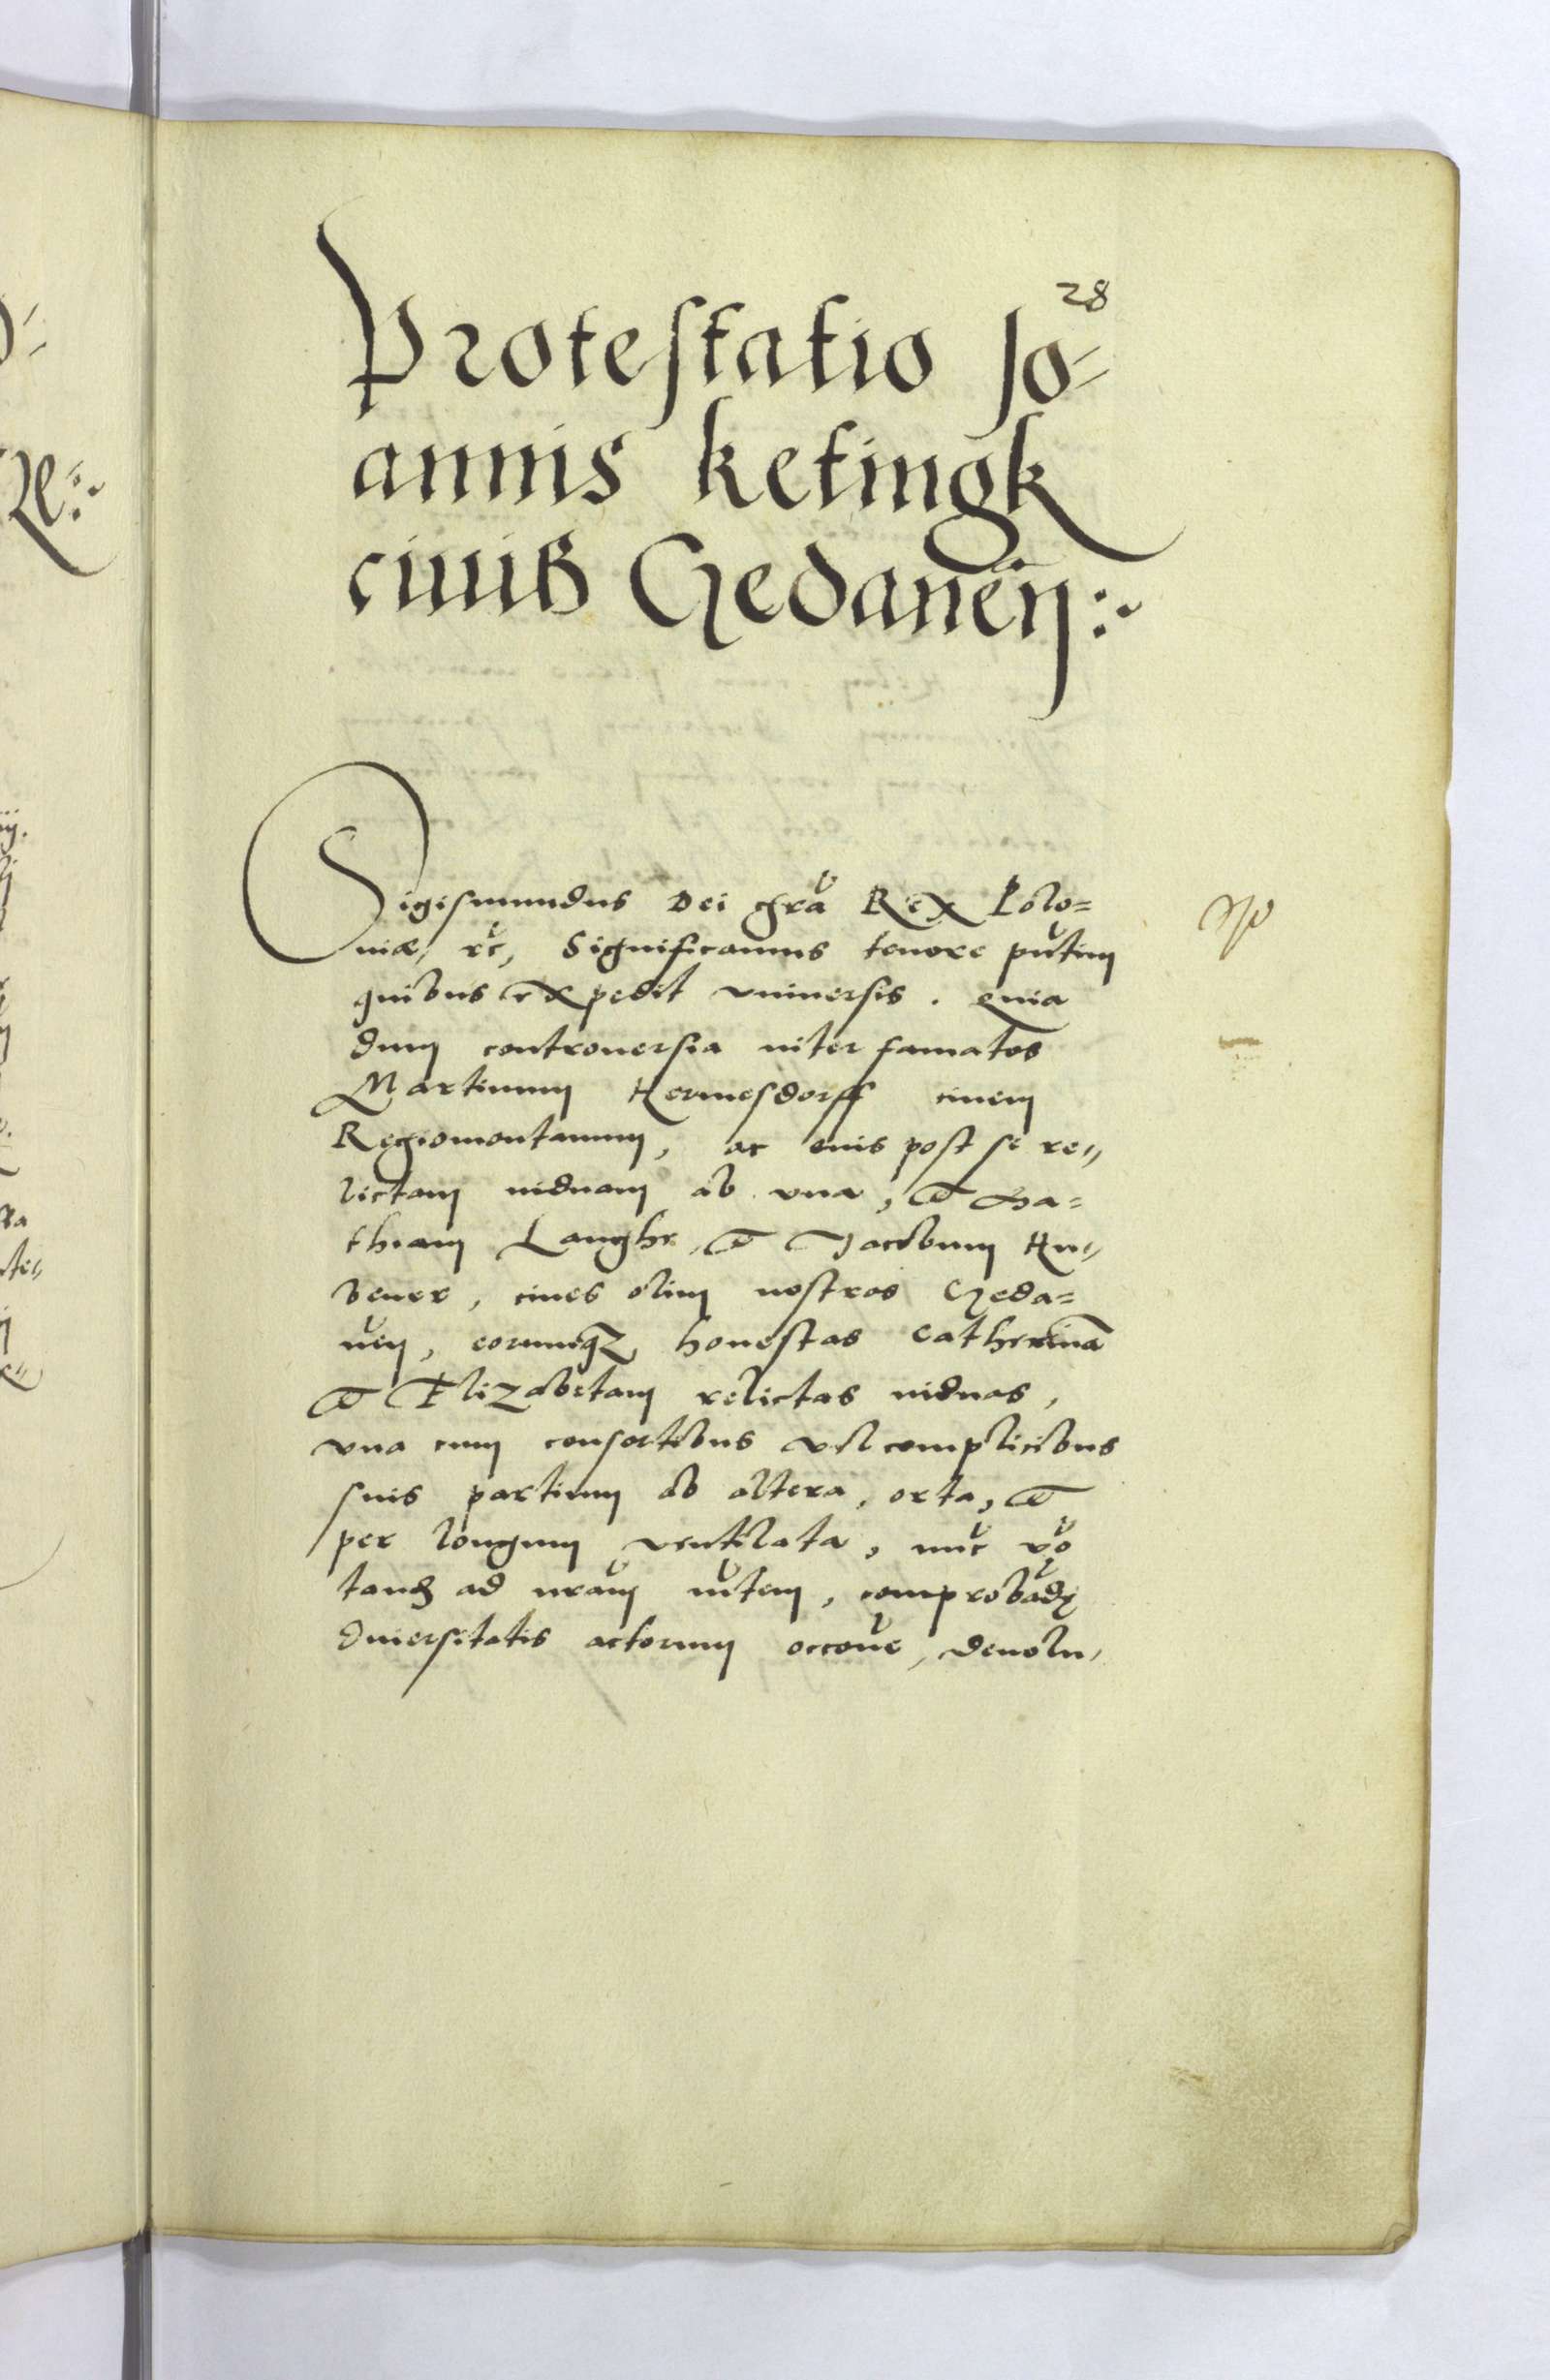 28
Protestatio Jo-
annis Ketingk
ciuis Gedaneñ:
Sigismundus Dei gra Rex Polo=
niæ, etc, Significamus tenore pntium
quibus expedit vniuersis. Quia
dum controuersia inter famatos
Martinum Hermesdorff ciuem
Regiomontanum, ac eius post se re=
lictam viduam ab vna, et Ma=
thiam Langhe, et Jacobum Hu=
bener, ciues olim nostros Geda=
nen, eorumqz honestas Catherinā
et Elizabetam relictas viduas,
vna cum consortibus vel complicibus
suis partium ab altera, orta, et
per longum ventilata, nuc vo
tand ad nram intem, comprobadę
diuersitatis actorum occone, deuolu=